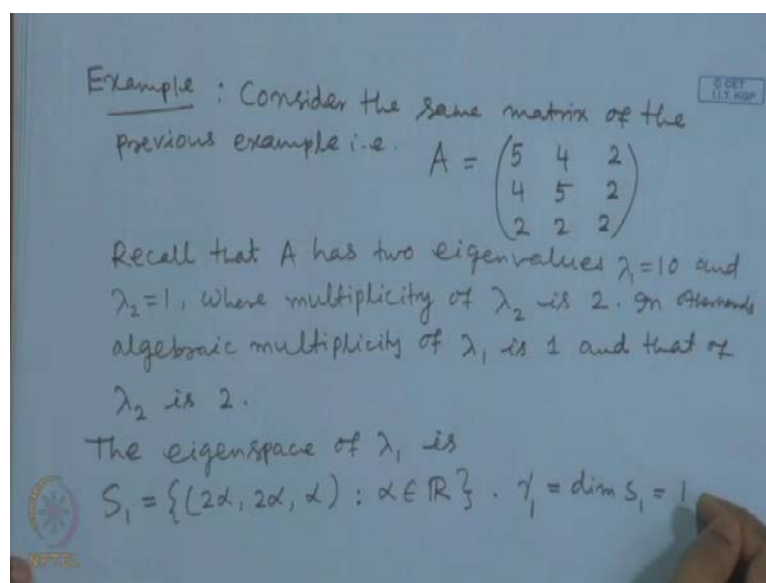 Example : Consider the same matrix of the
© CET
I.I.T. KGP
previous example i.e. A = (5 4 2
4 5 2
2 2 2)
Recall that A has two eigenvalues λ₁=10 and
λ₂=1, where multiplicity of λ₂ is 2. In
algebraic multiplicity of λ₁ is 1 and that of
λ₂ is 2.
The eigenspace of λ₁ is
S₁ = {(2α, 2α, α) : α ∈ ℝ}. γ₁ = dim S₁ = 1
NPTEL